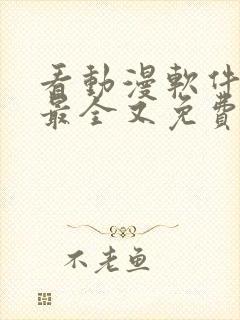 看動漫軟件
最全又免費
不老魚